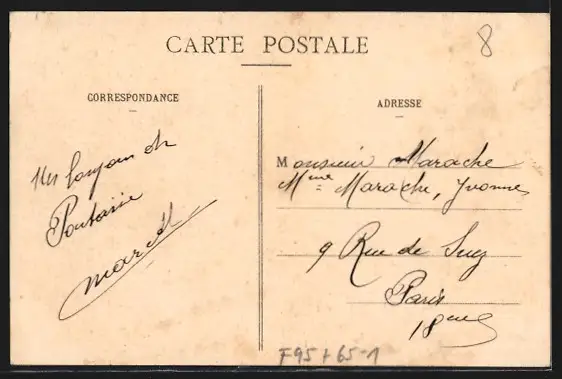 CARTE POSTALE
8
CORRESPONDANCE
ADRESSE
Un bonjour de
Pontarie
Marcel
Monsieur Marache
Mme Marache, Yvonne
9 Rue de Suez
Paris
18eme
F95+65-1